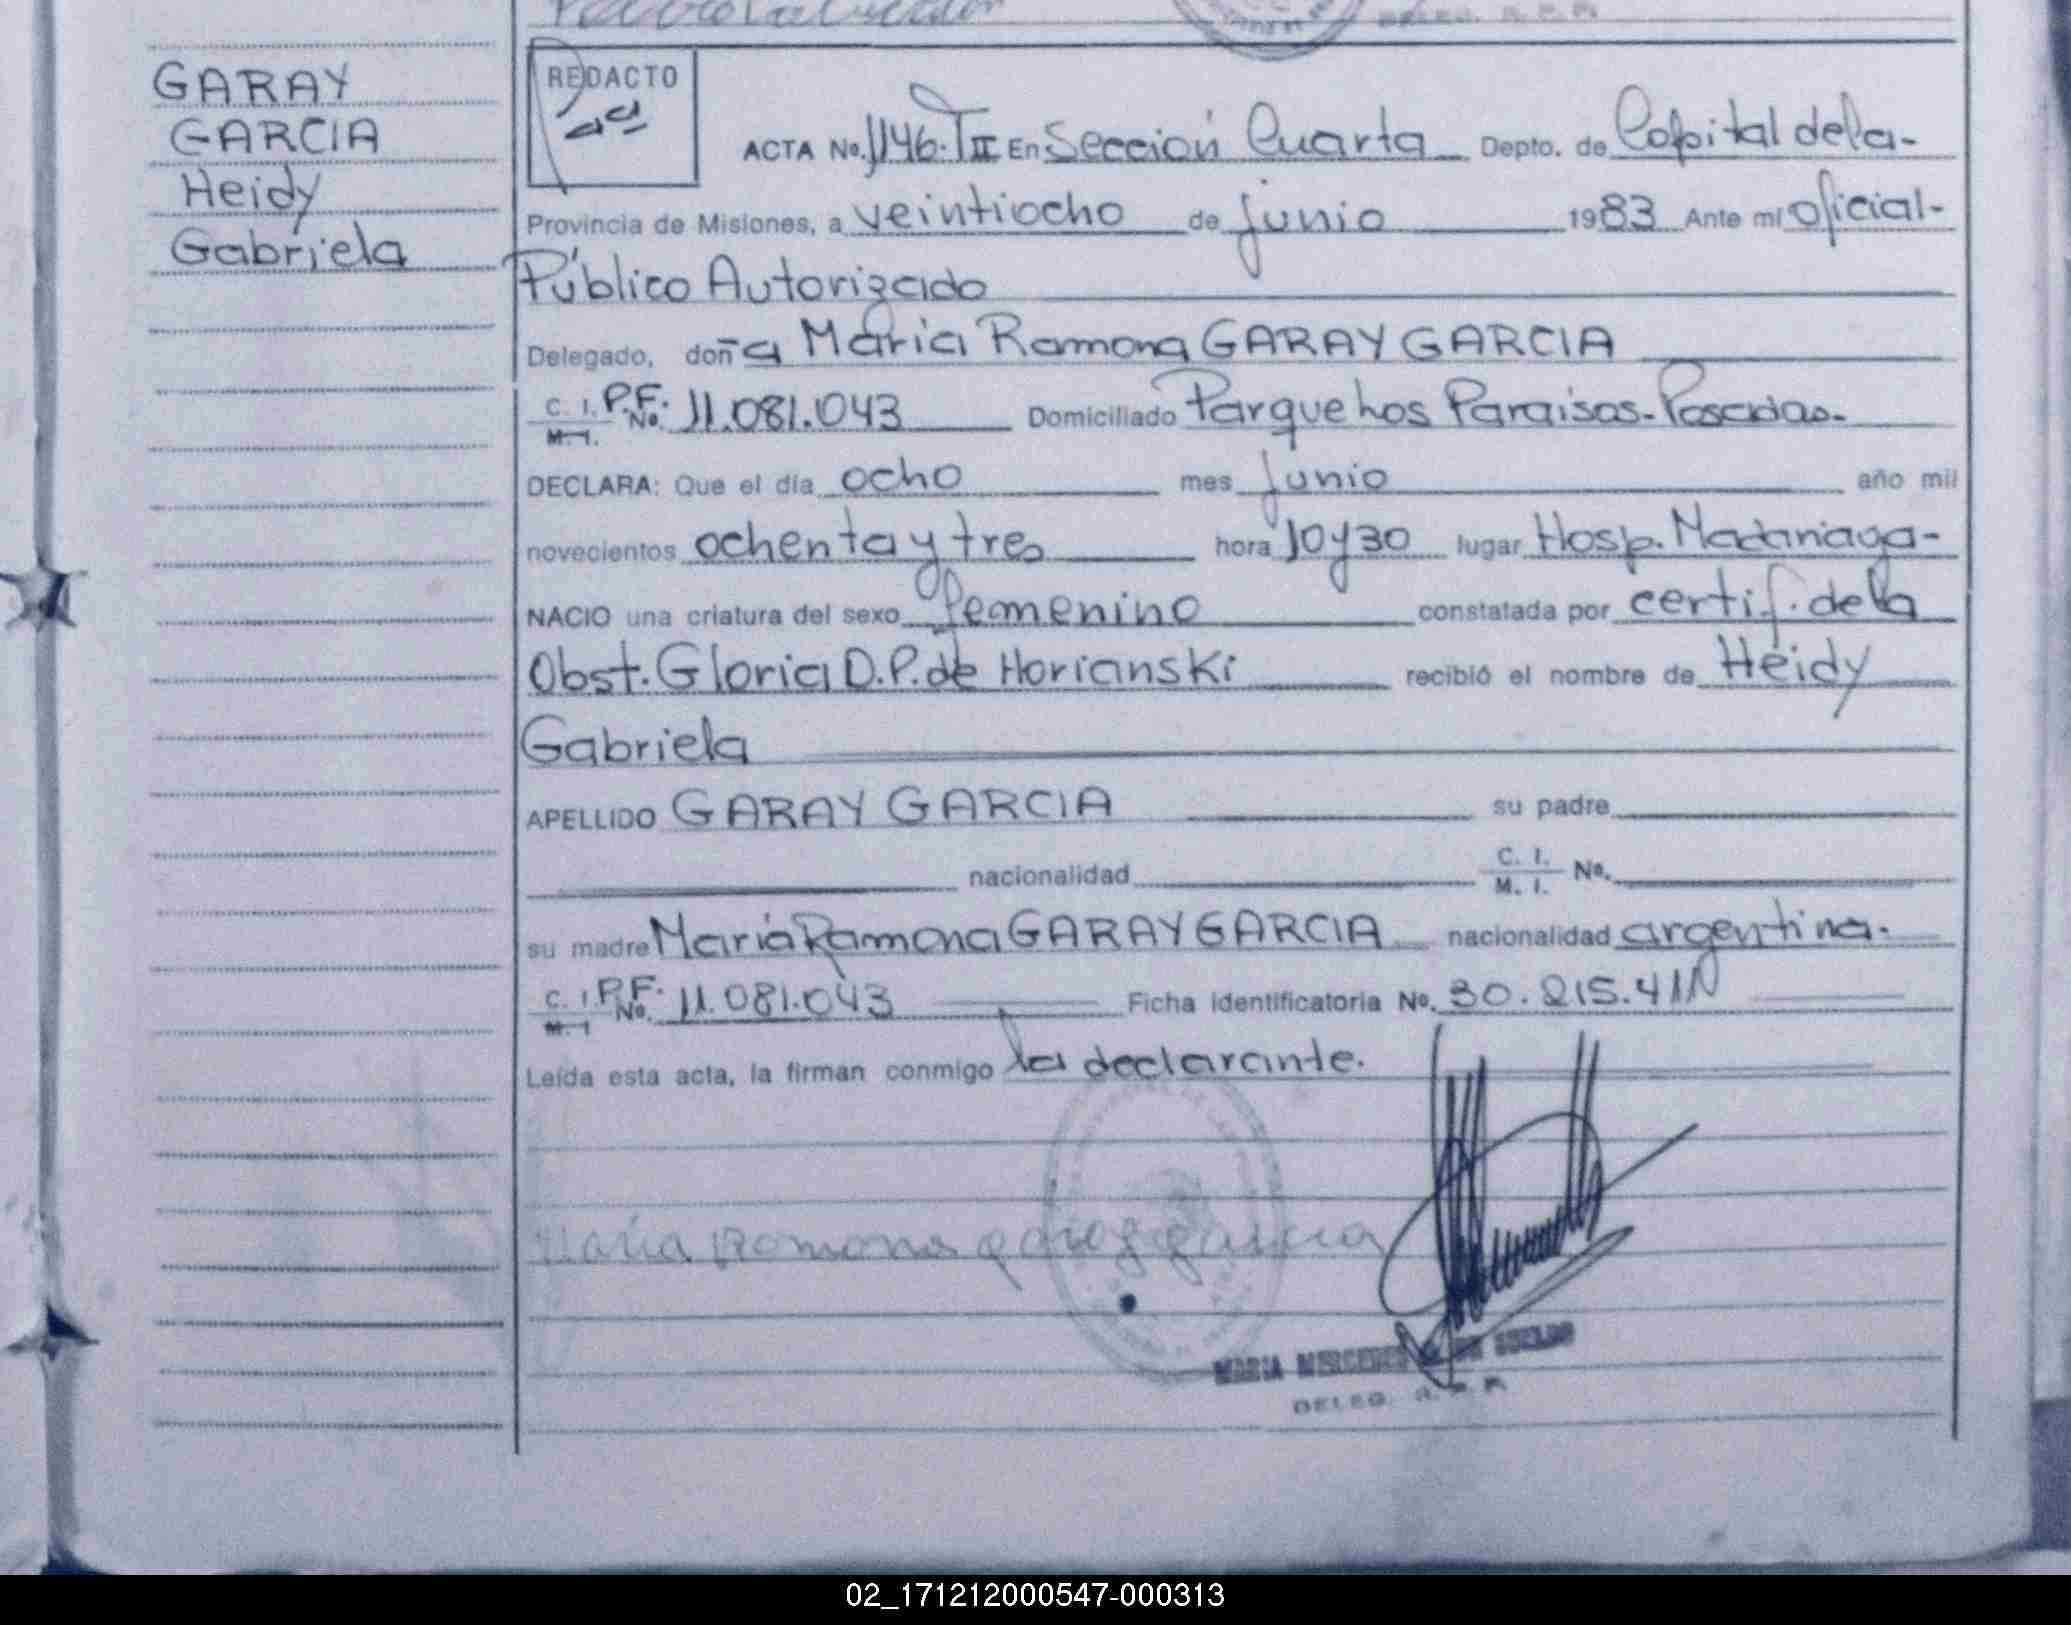 GARAY
GARCIA
Heidy
Gabriela
REDACTO
ACTA No. 1146. T II En Sección Cuarta Depto. de Capital de la-
Provincia de Misiones, a veintiocho de junio 1983 Ante mi oficial-
Público Autorizado
Delegado, doña Maria Ramona GARAY GARCIA
C. I. P.F. No. 11.081.043 Domiciliado Parque Los Paraisos-Posadas-
M. I.
DECLARA: Que el día ocho mes junio año mil
novecientos ochenta y tres hora 10 y 30 lugar Hosp. Madariaga-
NACIO una criatura del sexo femenino constatada por certif. de la
Obst. Gloria D.P. de Horianski recibió el nombre de Heidy
Gabriela
APELLIDO GARAY GARCIA su padre
nacionalidad C. I. M. I. No.
su madre Maria Ramona GARAY GARCIA nacionalidad argentina.
C. I. P.F. No. 11.081.043 Ficha identificatoria No. 30.215.411
M. I
Leída esta acta, la firman conmigo la declarante.
Maria Romona garay garcia
MARIA MERCEDES
DELEG. R. P. P.
02_171212000547-000313